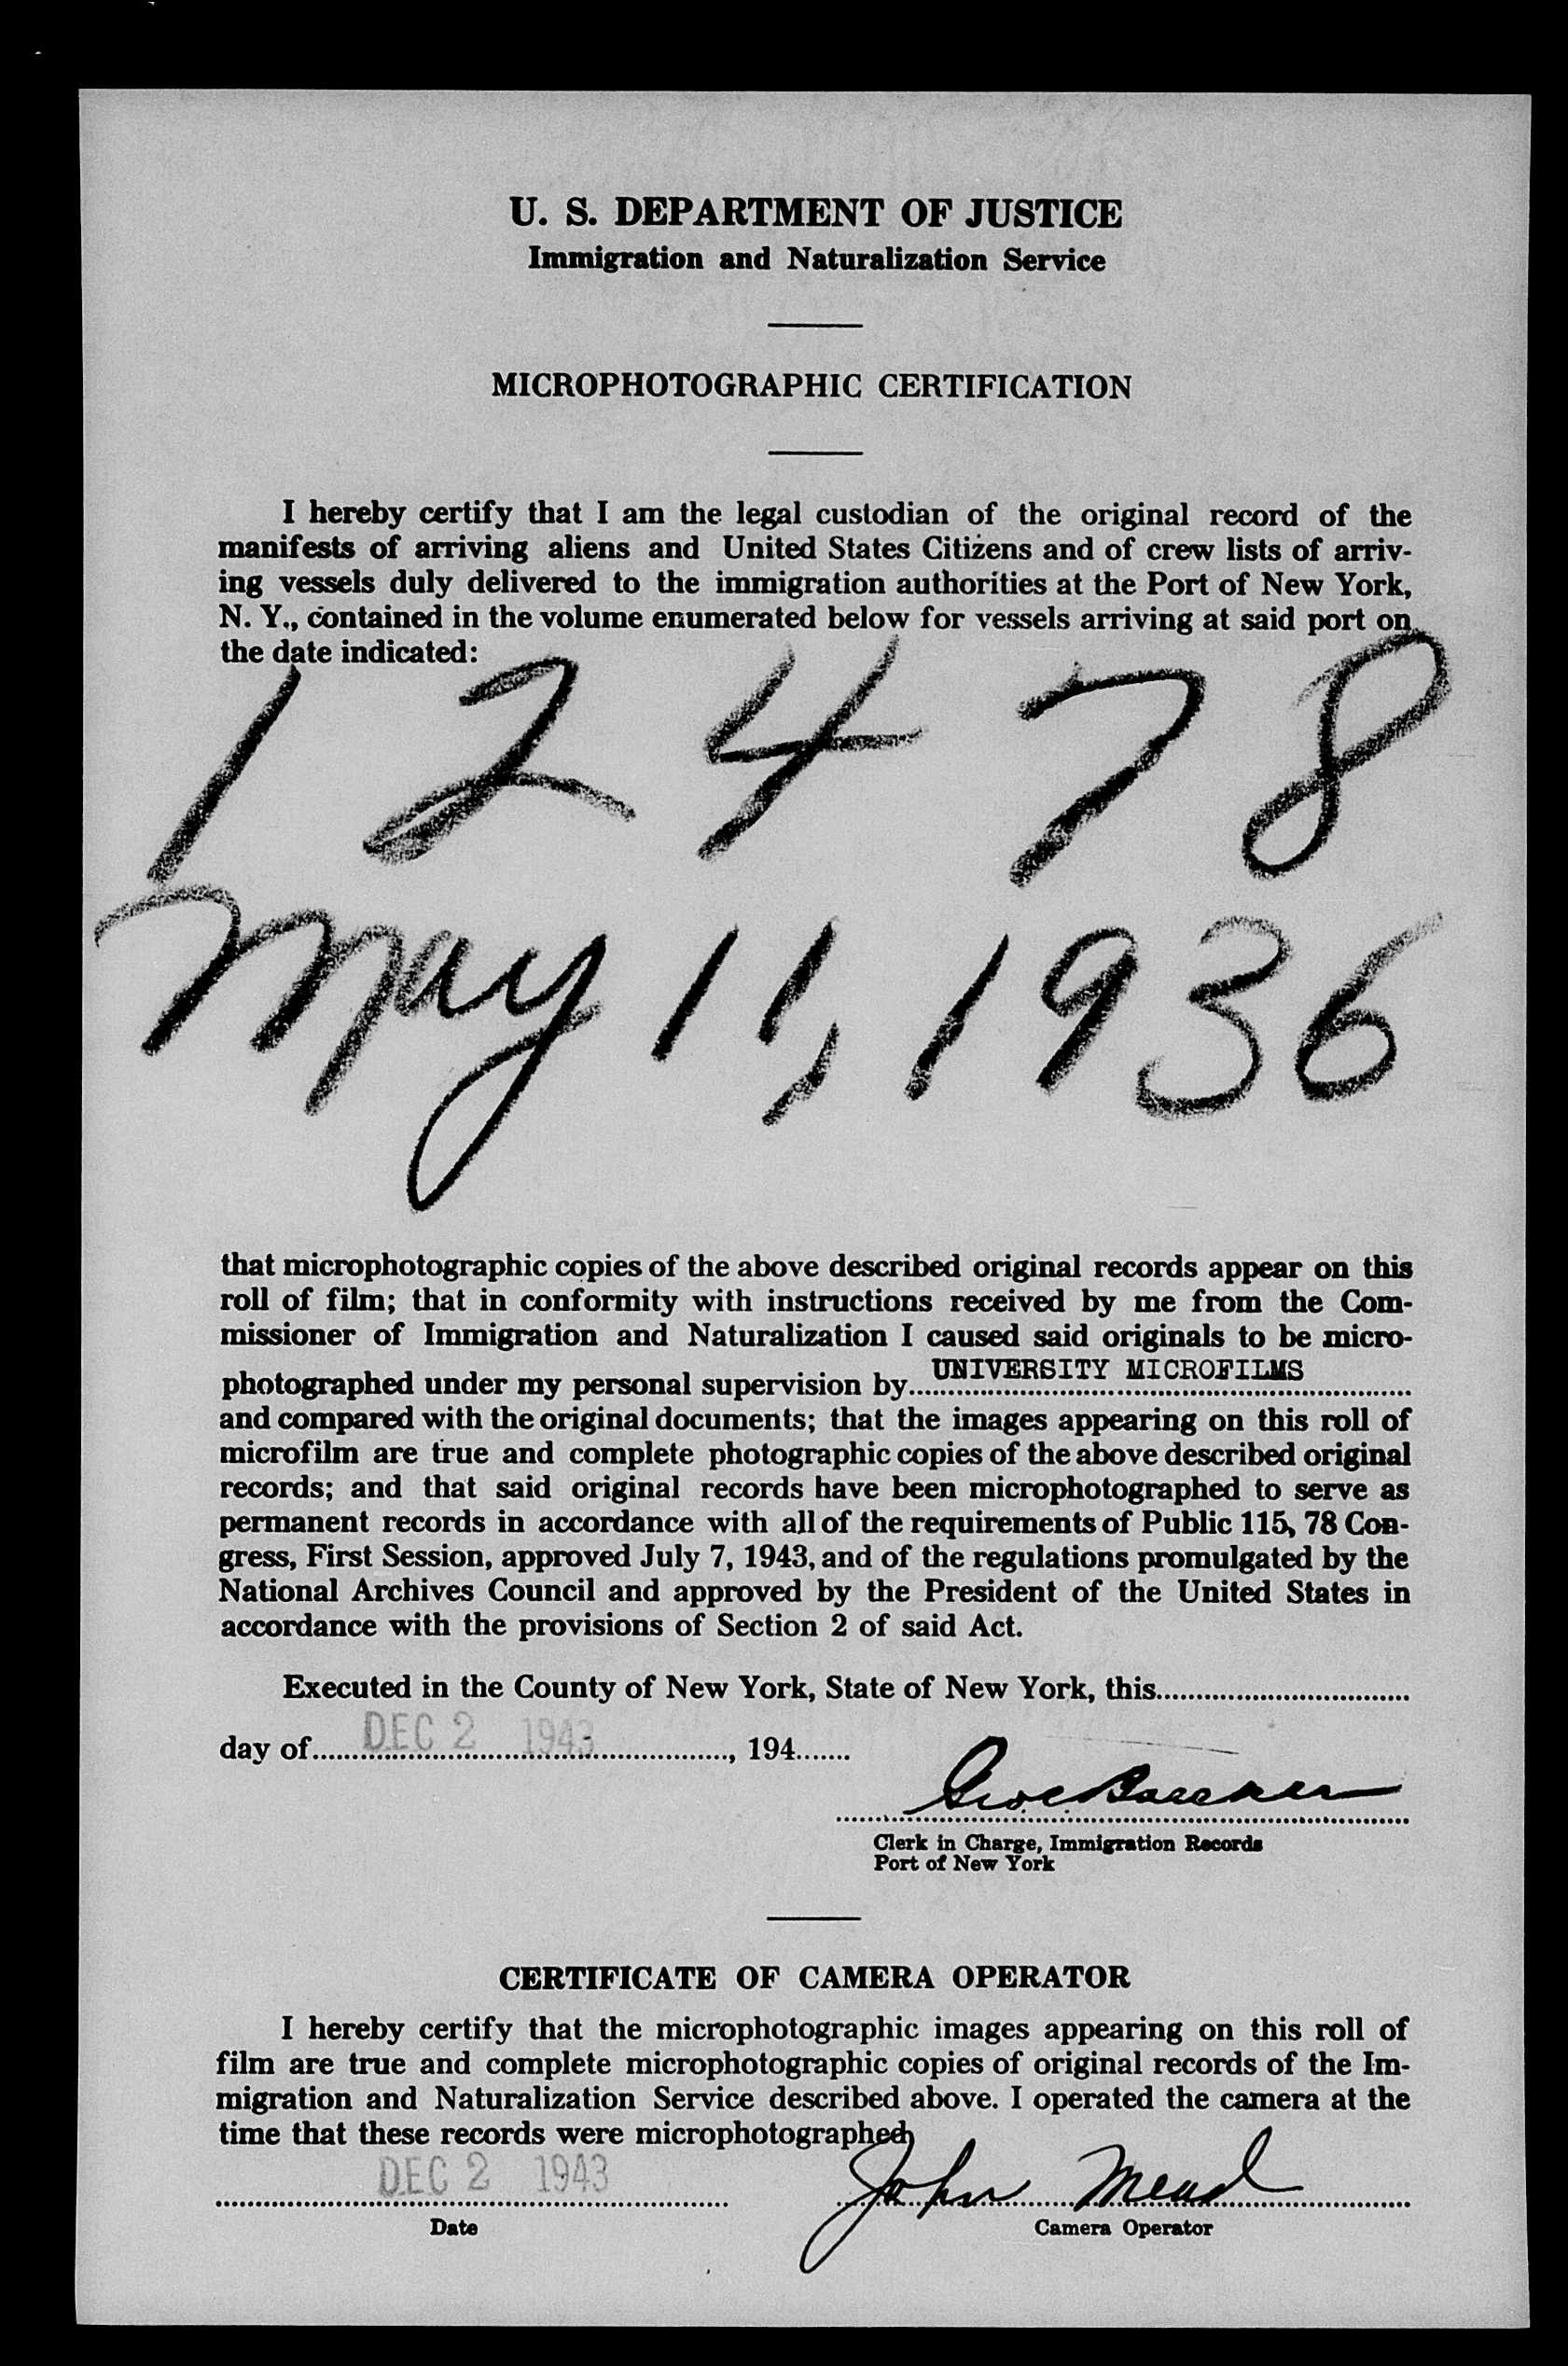 U. S. DEPARTMENT OF JUSTICE
Immigration and Naturalization Service
MICROPHOTOGRAPHIC CERTIFICATION
I hereby certify that I am the legal custodian of the original record of the
manifests of arriving aliens and United States Citizens and of crew lists of arriv-
ing vessels duly delivered to the immigration authorities at the Port of New York,
N. Y., contained in the volume enumerated below for vessels arriving at said port on
the date indicated:
1 2 4 7 8
May 11, 1936
that microphotographic copies of the above described original records appear on this
roll of film; that in conformity with instructions received by me from the Com-
missioner of Immigration and Naturalization I caused said originals to be micro-
photographed under my personal supervision by UNIVERSITY MICROFILMS
and compared with the original documents; that the images appearing on this roll of
microfilm are true and complete photographic copies of the above described original
records; and that said original records have been microphotographed to serve as
permanent records in accordance with all of the requirements of Public 115, 78 Con-
gress, First Session, approved July 7, 1943, and of the regulations promulgated by the
National Archives Council and approved by the President of the United States in
accordance with the provisions of Section 2 of said Act.
Executed in the County of New York, State of New York, this
day of DEC 2 1943, 194
Clerk in Charge, Immigration Records
Port of New York
CERTIFICATE OF CAMERA OPERATOR
I hereby certify that the microphotographic images appearing on this roll of
film are true and complete microphotographic copies of original records of the Im-
migration and Naturalization Service described above. I operated the camera at the
time that these records were microphotographed
DEC 2 1943 John Mead
Date Camera Operator